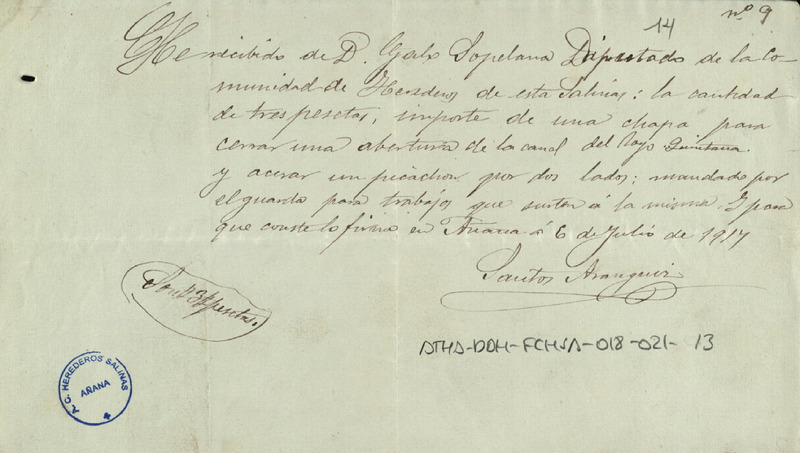 14
nº 9
He recibido de D. Galo Sopelana Diputado de la Co-
munidad de Herederos de esta Salinas: la cantidad
de tres pesetas, importe de una chapa para
cerrar una abertura de la canal del Royo Quintana.
y acerar un picachon por dos lados; mandado por
el guarda para trabajos que surten á la misma. Y para
que conste lo firmo en Añana á 6 de Julio de 1917
Santos Aranguiz
Son 3 pesetas.
ATHA-DDH-FCHSA-018-021-13
A. C. HEREDEROS SALINAS
AÑANA